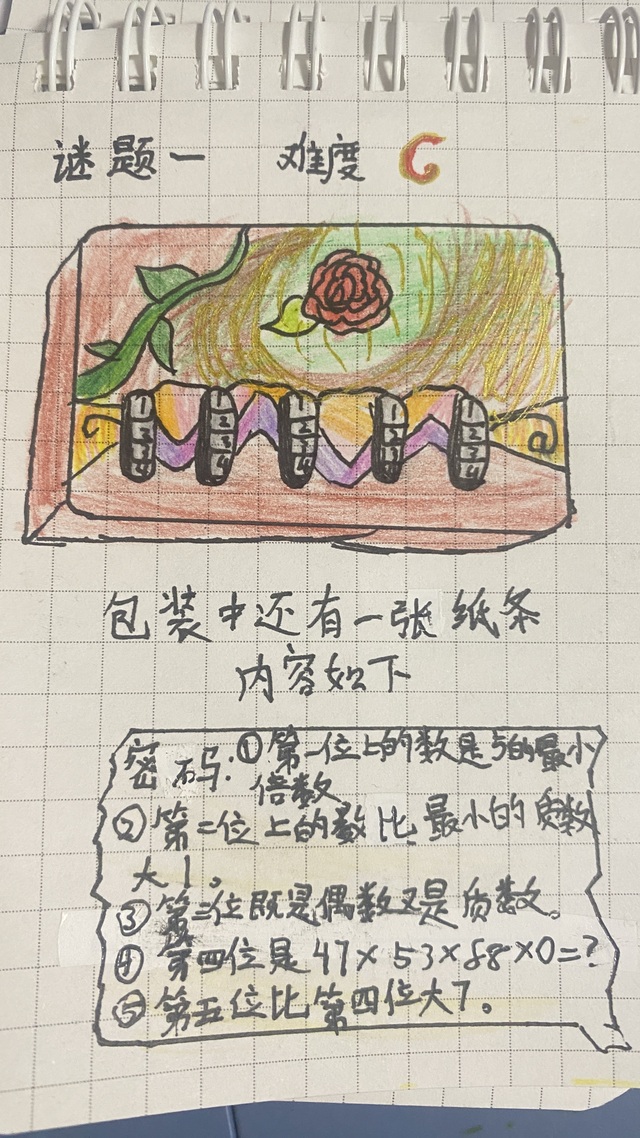 谜题一 难度 C
1 1 1 1 1
2 2 2 2 2
3 3 3 3 3
4 4 4 4 4
包装中还有一张纸条
内容如下
密码:①第一位上的数是5的最小
倍数
②第二位上的数比最小的质数
大1。
③第三位既是偶数又是质数。
④第四位是47×53×88×0=?
⑤第五位比第四位大7。